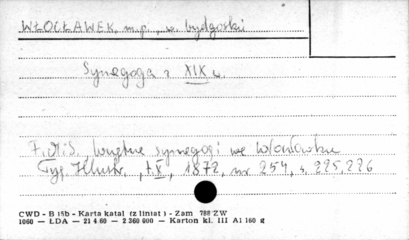 WŁOCŁAWEK, m.p., w. bydgoski
Synagoga z XIX w.
Wnętrze synagogi we Włocławku
Tyg. Illustr., t. X, 1872, nr 254, s. 225, 226
CWD - B 15b - Karta katal (z liniat) - Zam 788 ZW
1060 — ŁDA — 21 4 60 — 2 360 000 — Karton kl. III A1 160 g